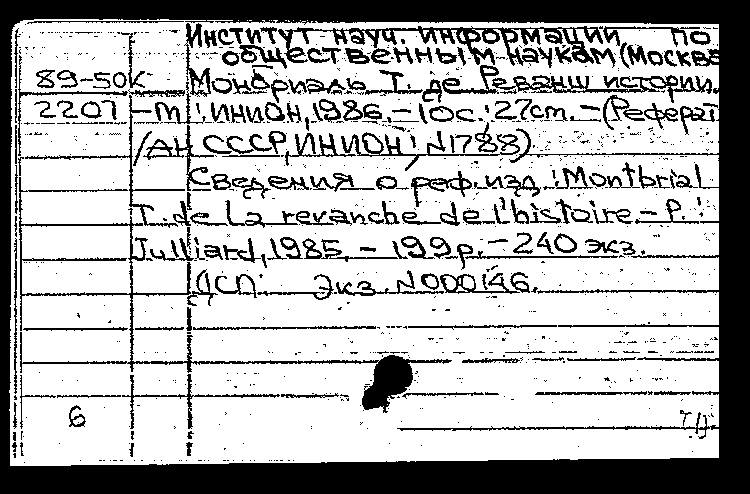 Институт науч. информации по
общественным наукам (Москва
89-50К Монбриаль Т. де Реванш истории.
2207 -м !ИНИОН, 1986.-10с.!27cm.-(Реферат
/АН СССР, ИНИОН! N1788)
Сведения о реф.изд.!Montbrial
T. de La revanche de l'histoire.- P.!
Julliard, 1985. - 199p. - 240 экз.
ДСП: Экз. N000146.
6